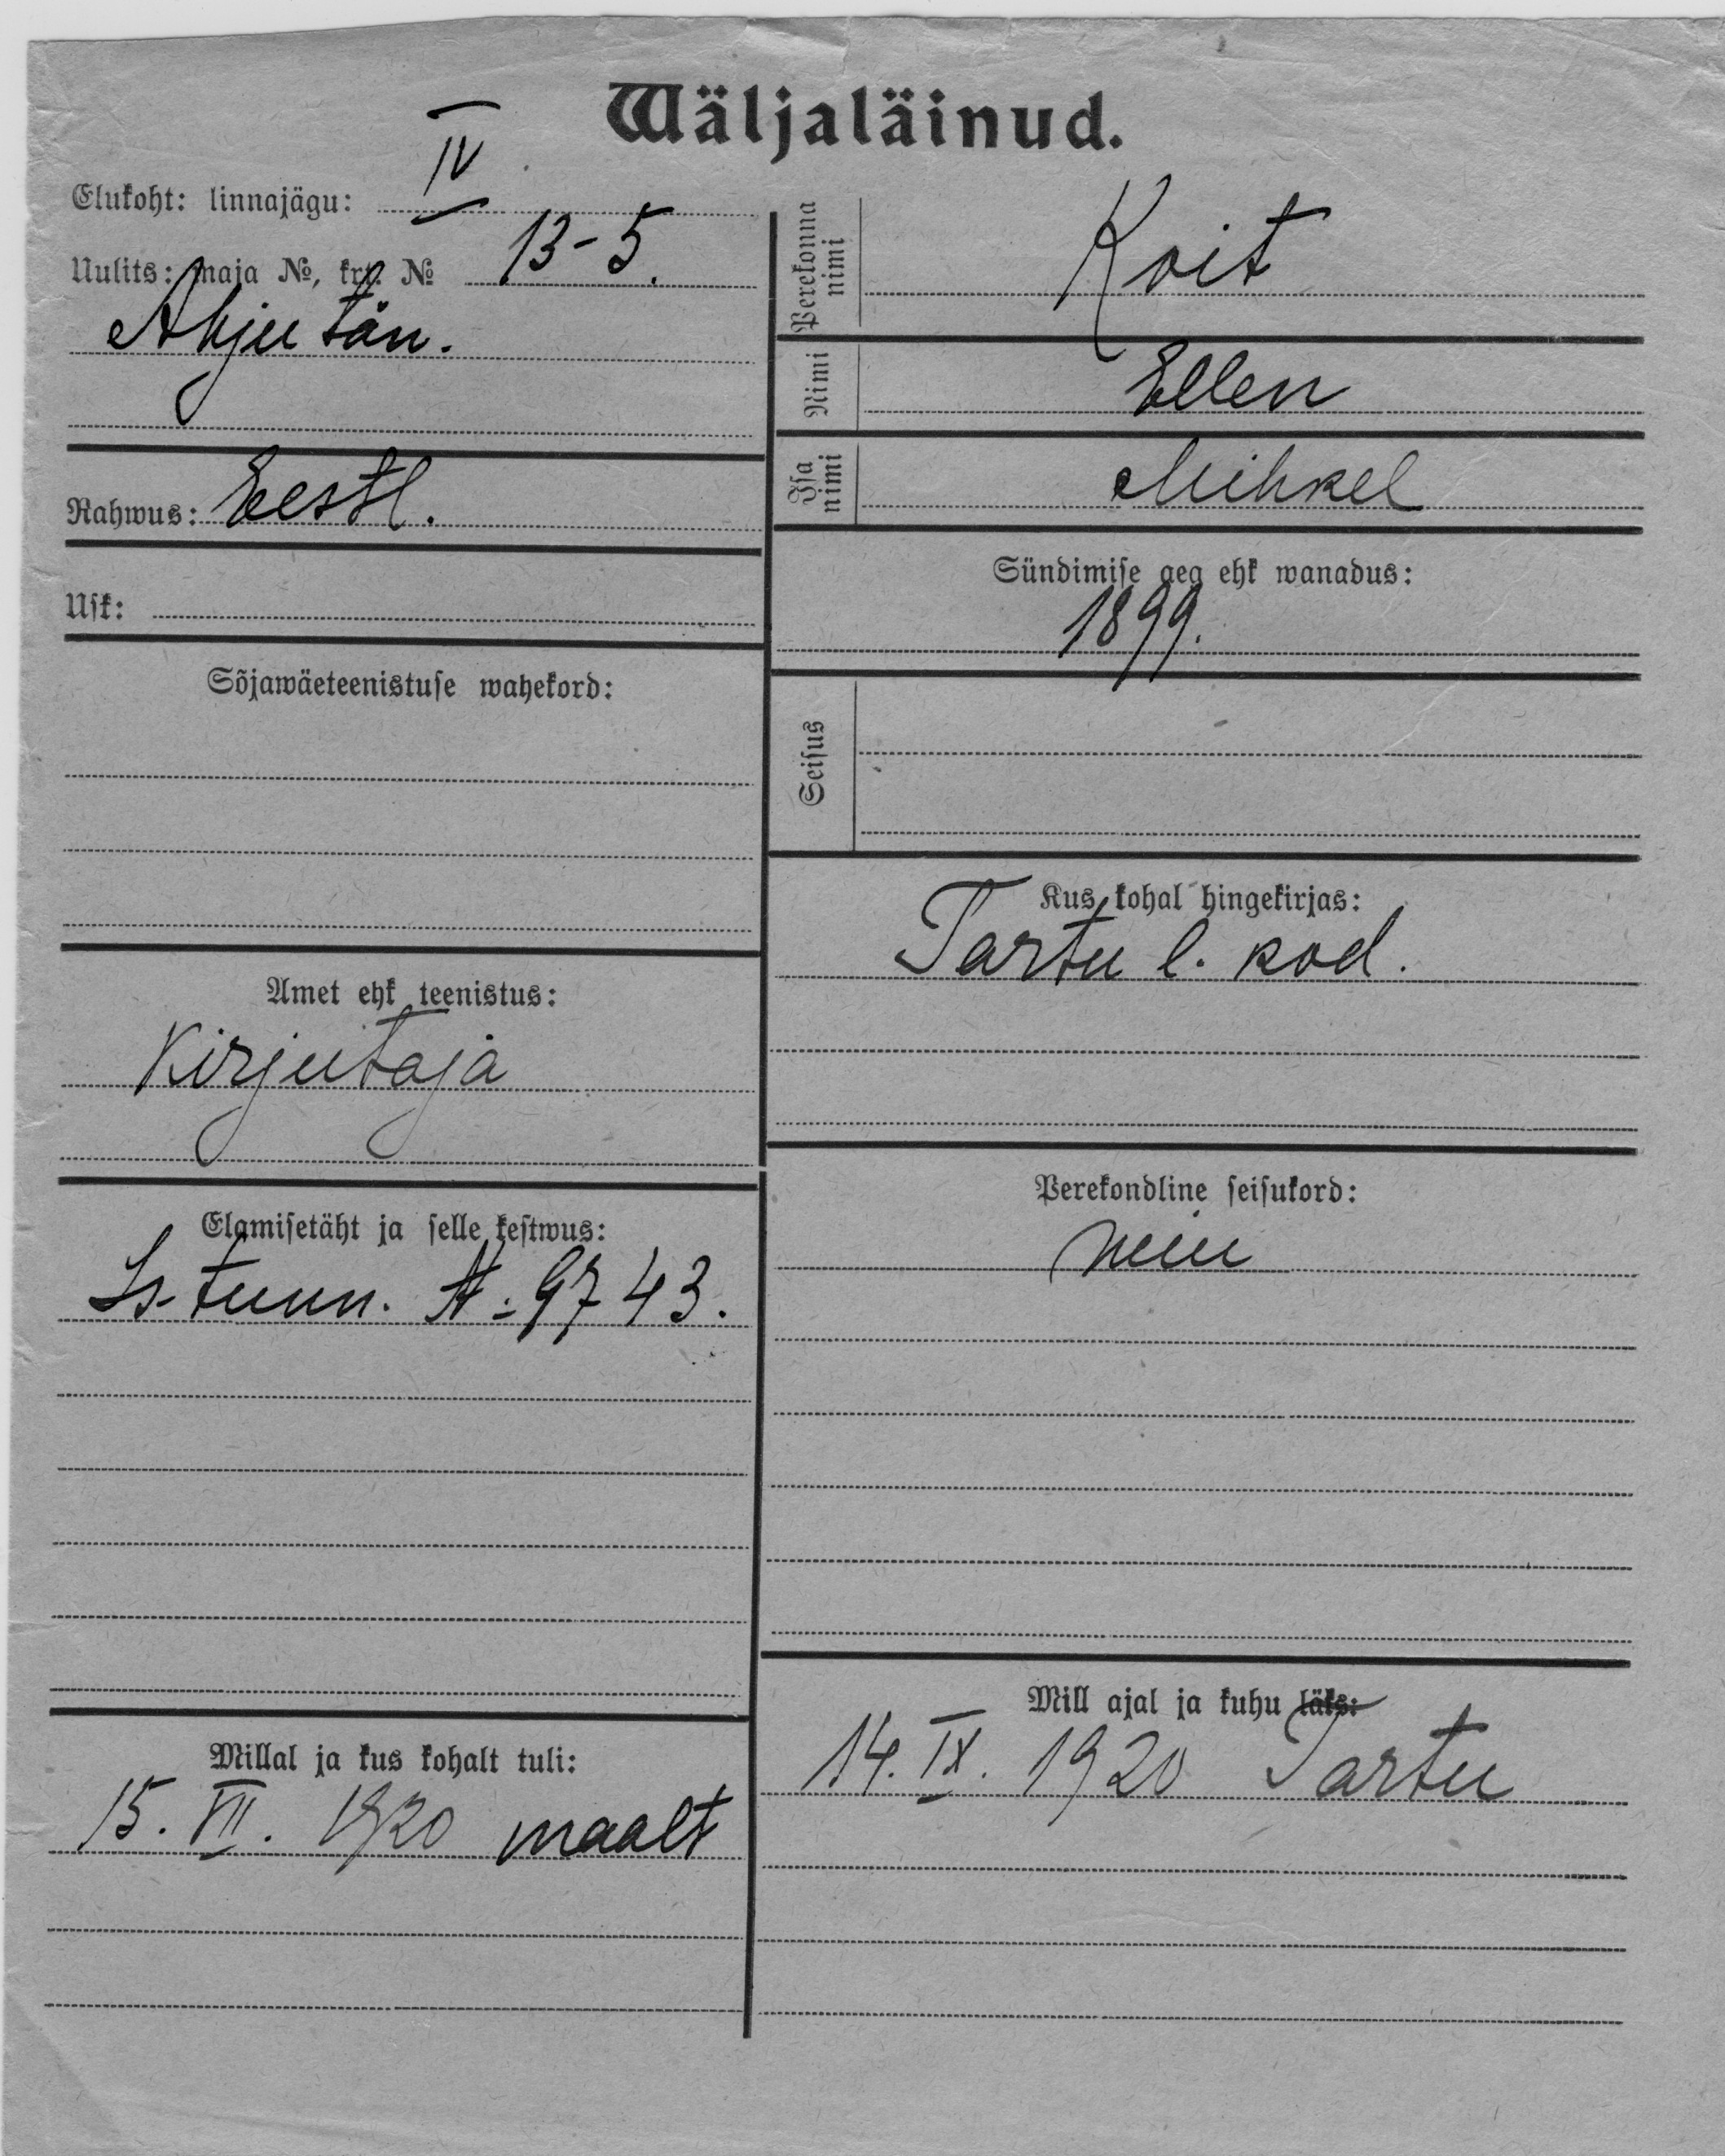 Wäljaläinud.
Elukoht: linnajägu: IV
Uulits: maja №, krt. № 13-5.
Ahju tän.
Rahwus: Eestl.
Usk:
Sõjawäeteenistuse wahekord:
Amet ehk teenistus:
Kirjutaja
Elamisetäht ja selle kestwus:
Is-tunn. N: 9743.
Millal ja kus kohalt tuli:
15. VII. 1920 maalt
Perekonna nimi Koit
Nimi Ellen
Isa nimi Mihkel
Sündimise aeg ehk wanadus:
1899.
Seisus
Kus kohal hingekirjas:
Tartu l. kod.
Perekondline seisukord:
Mill ajal ja kuhu läks:
14. IX. 1920 Tartu